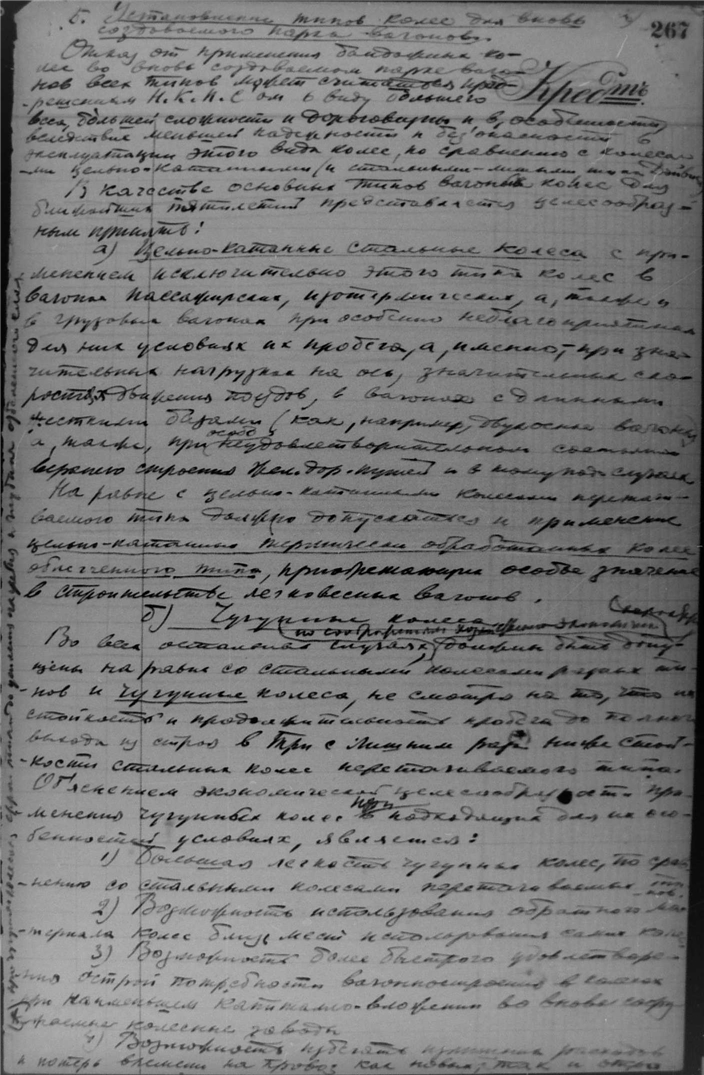 267
5. Установление типов колес для вновь
создаваемого парка вагонов.
Отказ от применения бандажных ко-
лес во вновь создаваемом парке ваго-
нов всех типов может считаться пред-
-решенным Н.К.П.С ом в виду большего
веса, большей сложности и дороговизны и в особенности
вследствие меньшей надежности и безопасности в
эксплуатации этого вида колес, по сравнению с колеса-
-ми цельно-катанными (и стальными-литыми типа
В качестве основных типов вагонных колес для
ближайших пятилетий представляется целесообраз-
ным принять:
а) Цельно-катанные стальные колеса с при-
менением исключительно этого типа колес в
вагонах пассажирских, изотермических, а, также и
в грузовых вагонах при особенно неблагоприятных
для них условиях их пробега, а, именно, при зна-
чительных нагрузках на ось, значительных ско-
ростях движения поездов, в вагонах с длинными
жесткими базами (как, например, двухосные вагоны)
а, также, при особо неудовлетворительном состоянии
верхнего строения жел.дор. путей и в тому под. случаях
На равне с цельно-катанными колесами перетачи-
ваемого типа должно допускаться и применение
цельно-катанных термически обработанных колес
облегченного типа, приобретающих особое значение
в строительстве легковесных вагонов.
б) Чугунные колеса
Во всех остальных случаях должны быть допу-
щены на равне со стальными колесами разных ти-
пов и чугунные колеса, не смотря на то, что их
стойкость и продолжительность пробега до полного
выхода из строя в три с лишним раза ниже стой-
кости стальных колес перетачиваемого типа.
Об'яснением экономической целесообразности при-
менения чугунных колес при подходящих для их осо-
бенностей условиях, является:
1) Большая легкость чугунных колес, по срав-
-нению со стальными колесами перетачиваемых типов.
2) Возможность использования обратного ма-
-териала колес близ мест использования самих колес
3) Возможность более быстрого удовлетворе-
ния острой потребности вагоностроения в колесах
при наименьшем капитало-вложении во вновь соору-
жаемые колесные заводы
4) Возможность избежать излишних расходов
и потерь времени на провоз как новых, так и